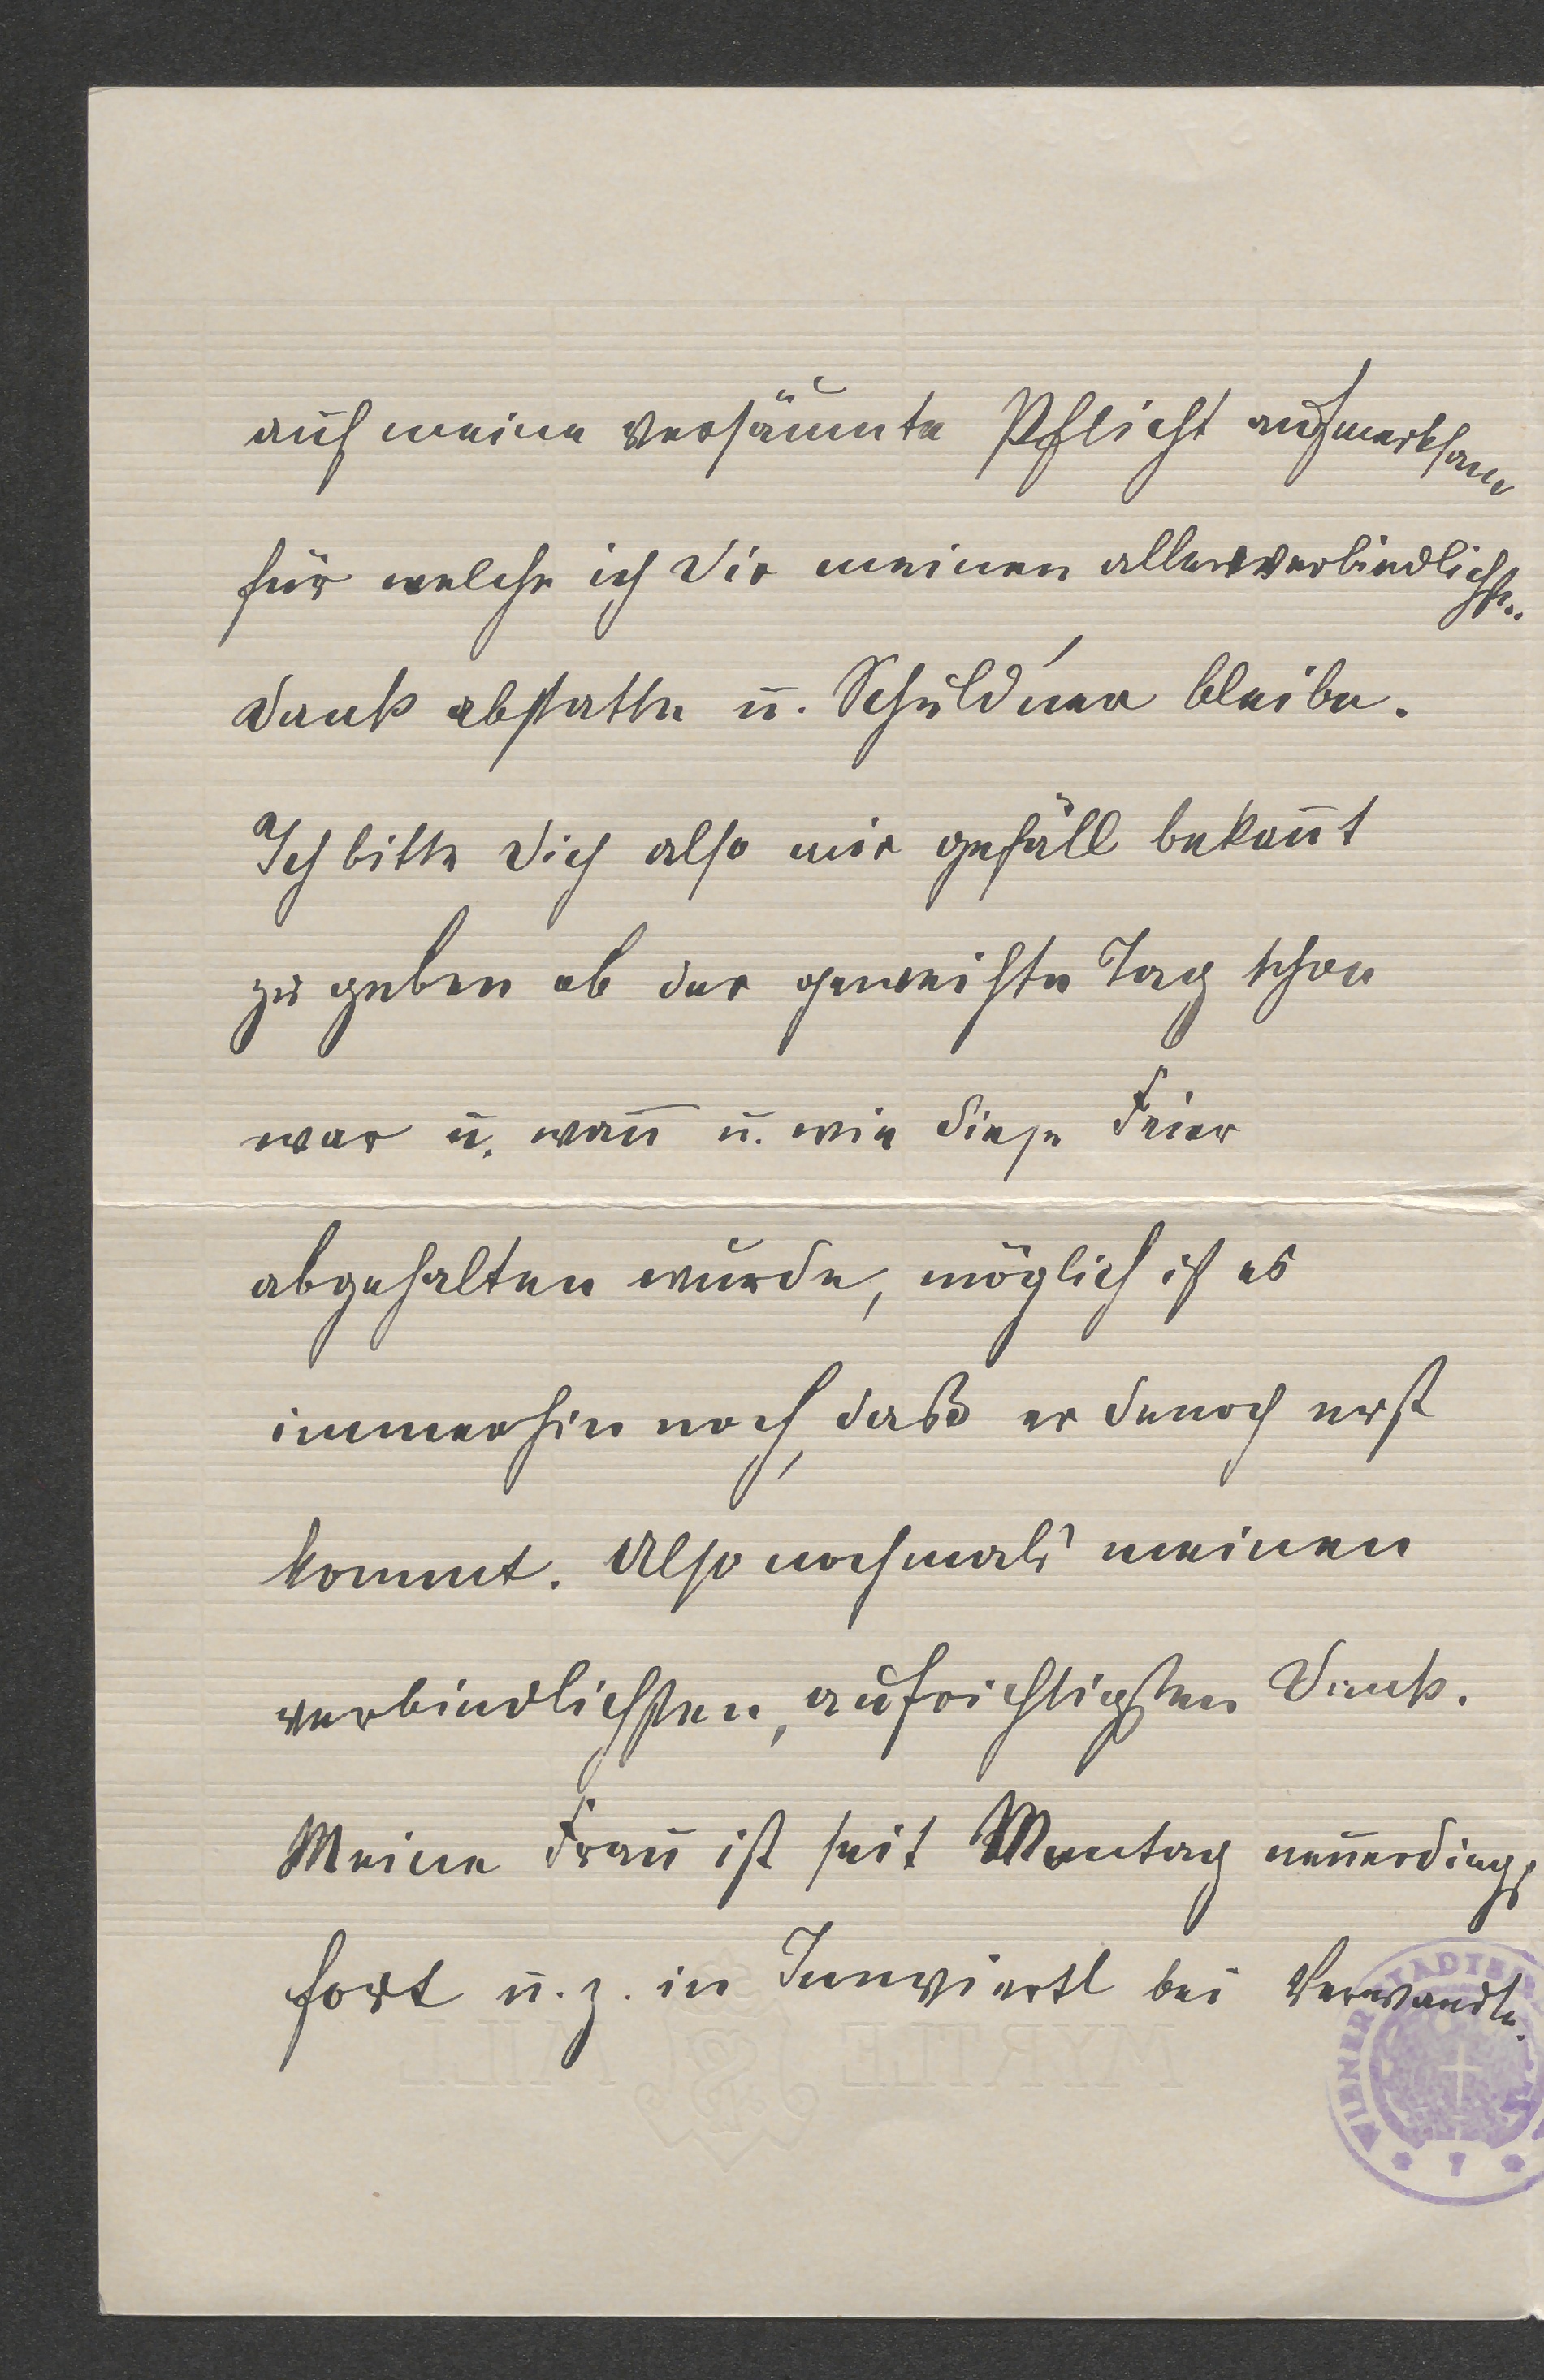 auf meine versäumte Pflicht aufmerksam
für welche ich Dir meinen allerverbindlichsten
Dank abstatte u. Schuldner bleibe.
Ich bitte Dich also mir gefäll bekan̄t
zu geben ob der geweihte Tag schon
war u. wan̄ u. wie diese Feier
abgehalten wurde, möglich ist es
immerhin noch, daß er denoch erst
kommt. Also nochmals meinen
verbindlichsten, aufrichtigsten Dank.
Meine Frau ist seit Montag neuerdings
fort u. z. in Innviertl bei Verwandte.
WIENER STÄDTI
MYRTLE MILL